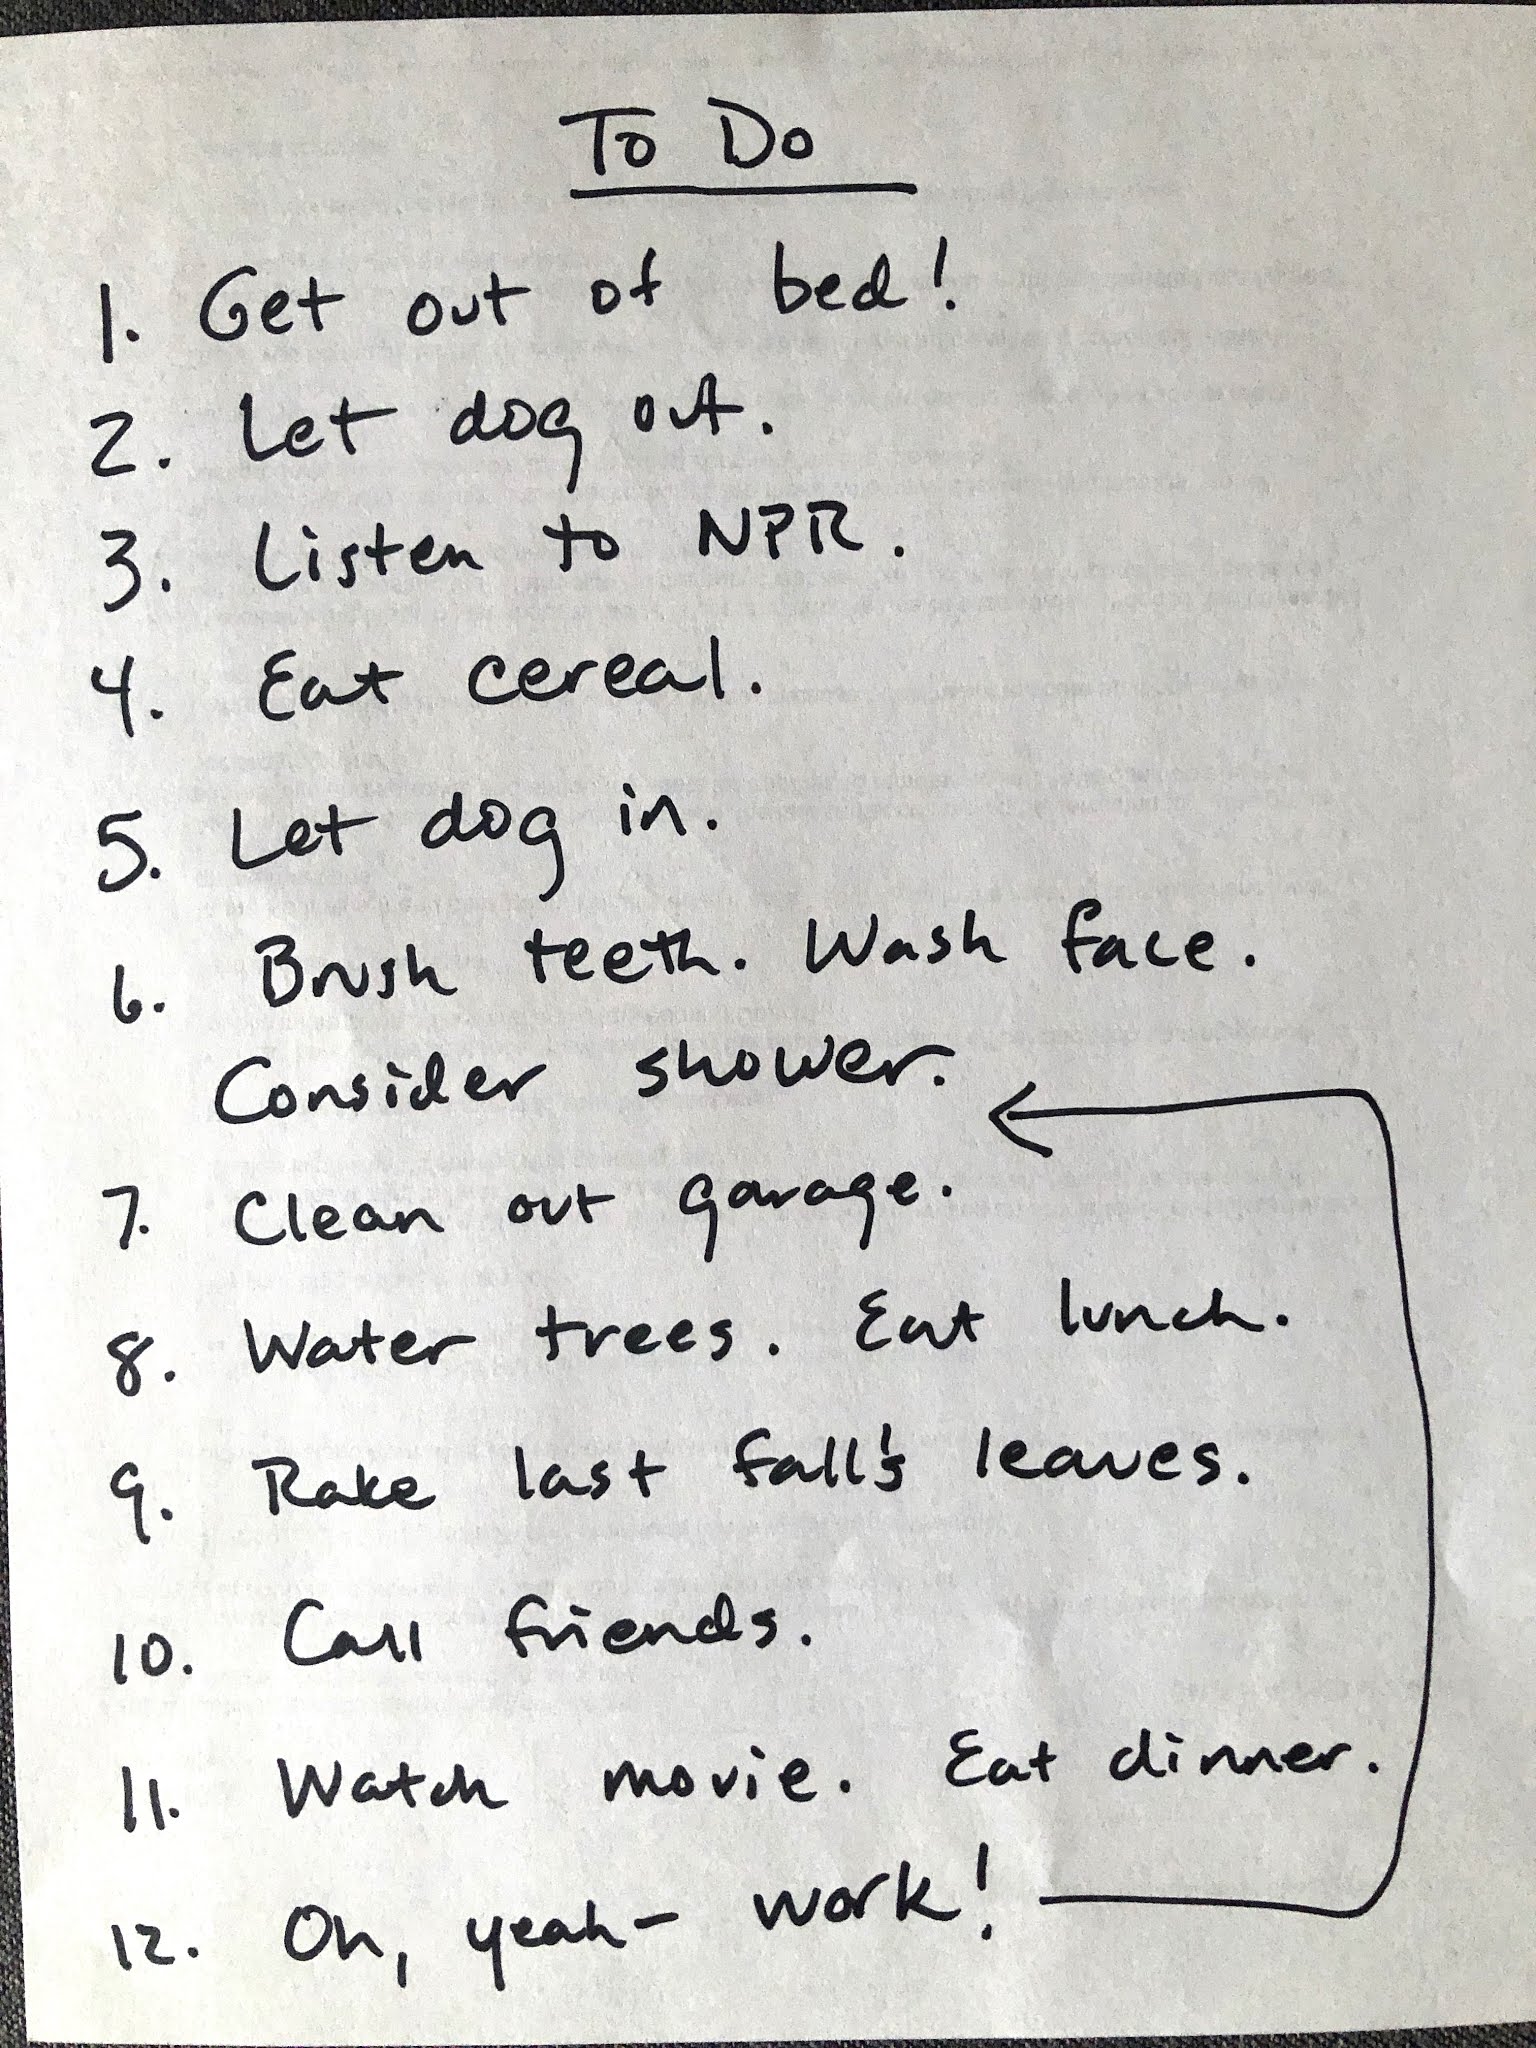 To Do
1. Get out of bed!
2. Let dog out.
3. Listen to NPR.
4. Eat cereal.
5. Let dog in.
6. Brush teeth. Wash face.
Consider shower.
7. Clean out garage.
8. Water trees. Eat lunch.
9. Rake last fall's leaves.
10. Call friends.
11. Watch movie. Eat dinner.
12. Oh, yeah- work!